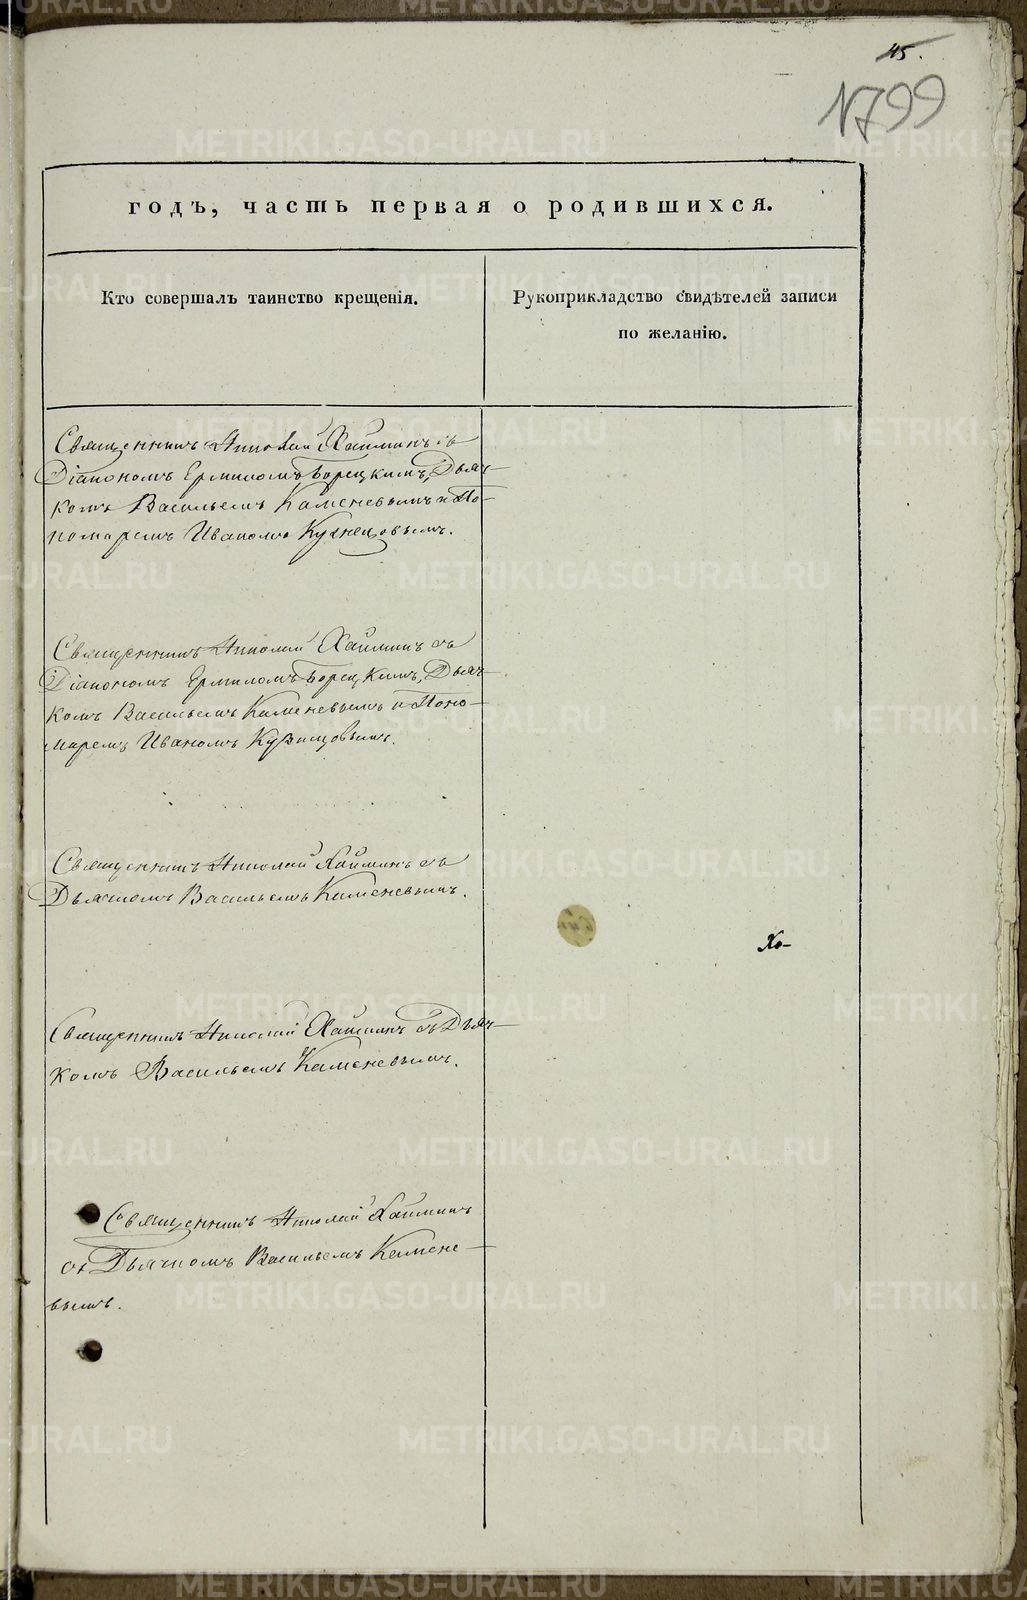 45.
N799
годъ, часть первая о родившихся.
Кто совершалъ таинство крещенія.
Рукоприкладство свидѣтелей записи
по желанію.
Священникъ Николай Хайминъ съ
Діакономъ Ермиломъ Борецкимъ, Дьяч-
комъ Васильемъ Каменевымъ и По-
номаремъ Иваномъ Кузнецовымъ.
Священникъ Николай Хайминъ съ
Діакономъ Ермиломъ Борецкимъ, Дьяч-
комъ Васильемъ Каменевымъ и Поно-
маремъ Иваномъ Кузнецовымъ.
Священникъ Николай Хайминъ съ
Дьячкомъ Васильемъ Каменевымъ.
Хо-
Священникъ Николай Хайминъ съ Дьяч-
комъ Васильемъ Каменевымъ.
Священникъ Николай Хайминъ
съ Дьячкомъ Васильемъ Камене-
вымъ.
METRIKI.GASO-URAL.RU